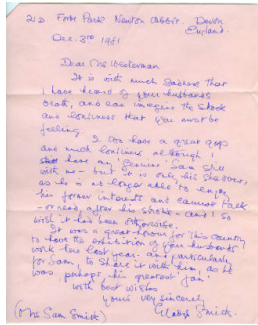 21D Forde Park Newton Abbot. Devon
England.
Dec. 3rd 1981
Dear Mrs Westerman
It is with much sadness that
I have heard of your husbands
death, and can imagine the shock
and loneliness that you must be
feeling
I too have a great gap
and much loneliness although I
have my 'Genuine' Sam still
with me - but it is only his shadow,
as he is no longer able to enjoy
his former interests and cannot talk
- or read, after his stroke - and I so
wish it had been otherwise.
It was a great honour for this country
to have the exhibition of your husband's
work here last year - and particularly
for Sam, to share it with him, as he
was perhaps his greatest 'fan'
with best wishes
yours very sincerely
Gladys Smick.
(Mrs Sam Smick)